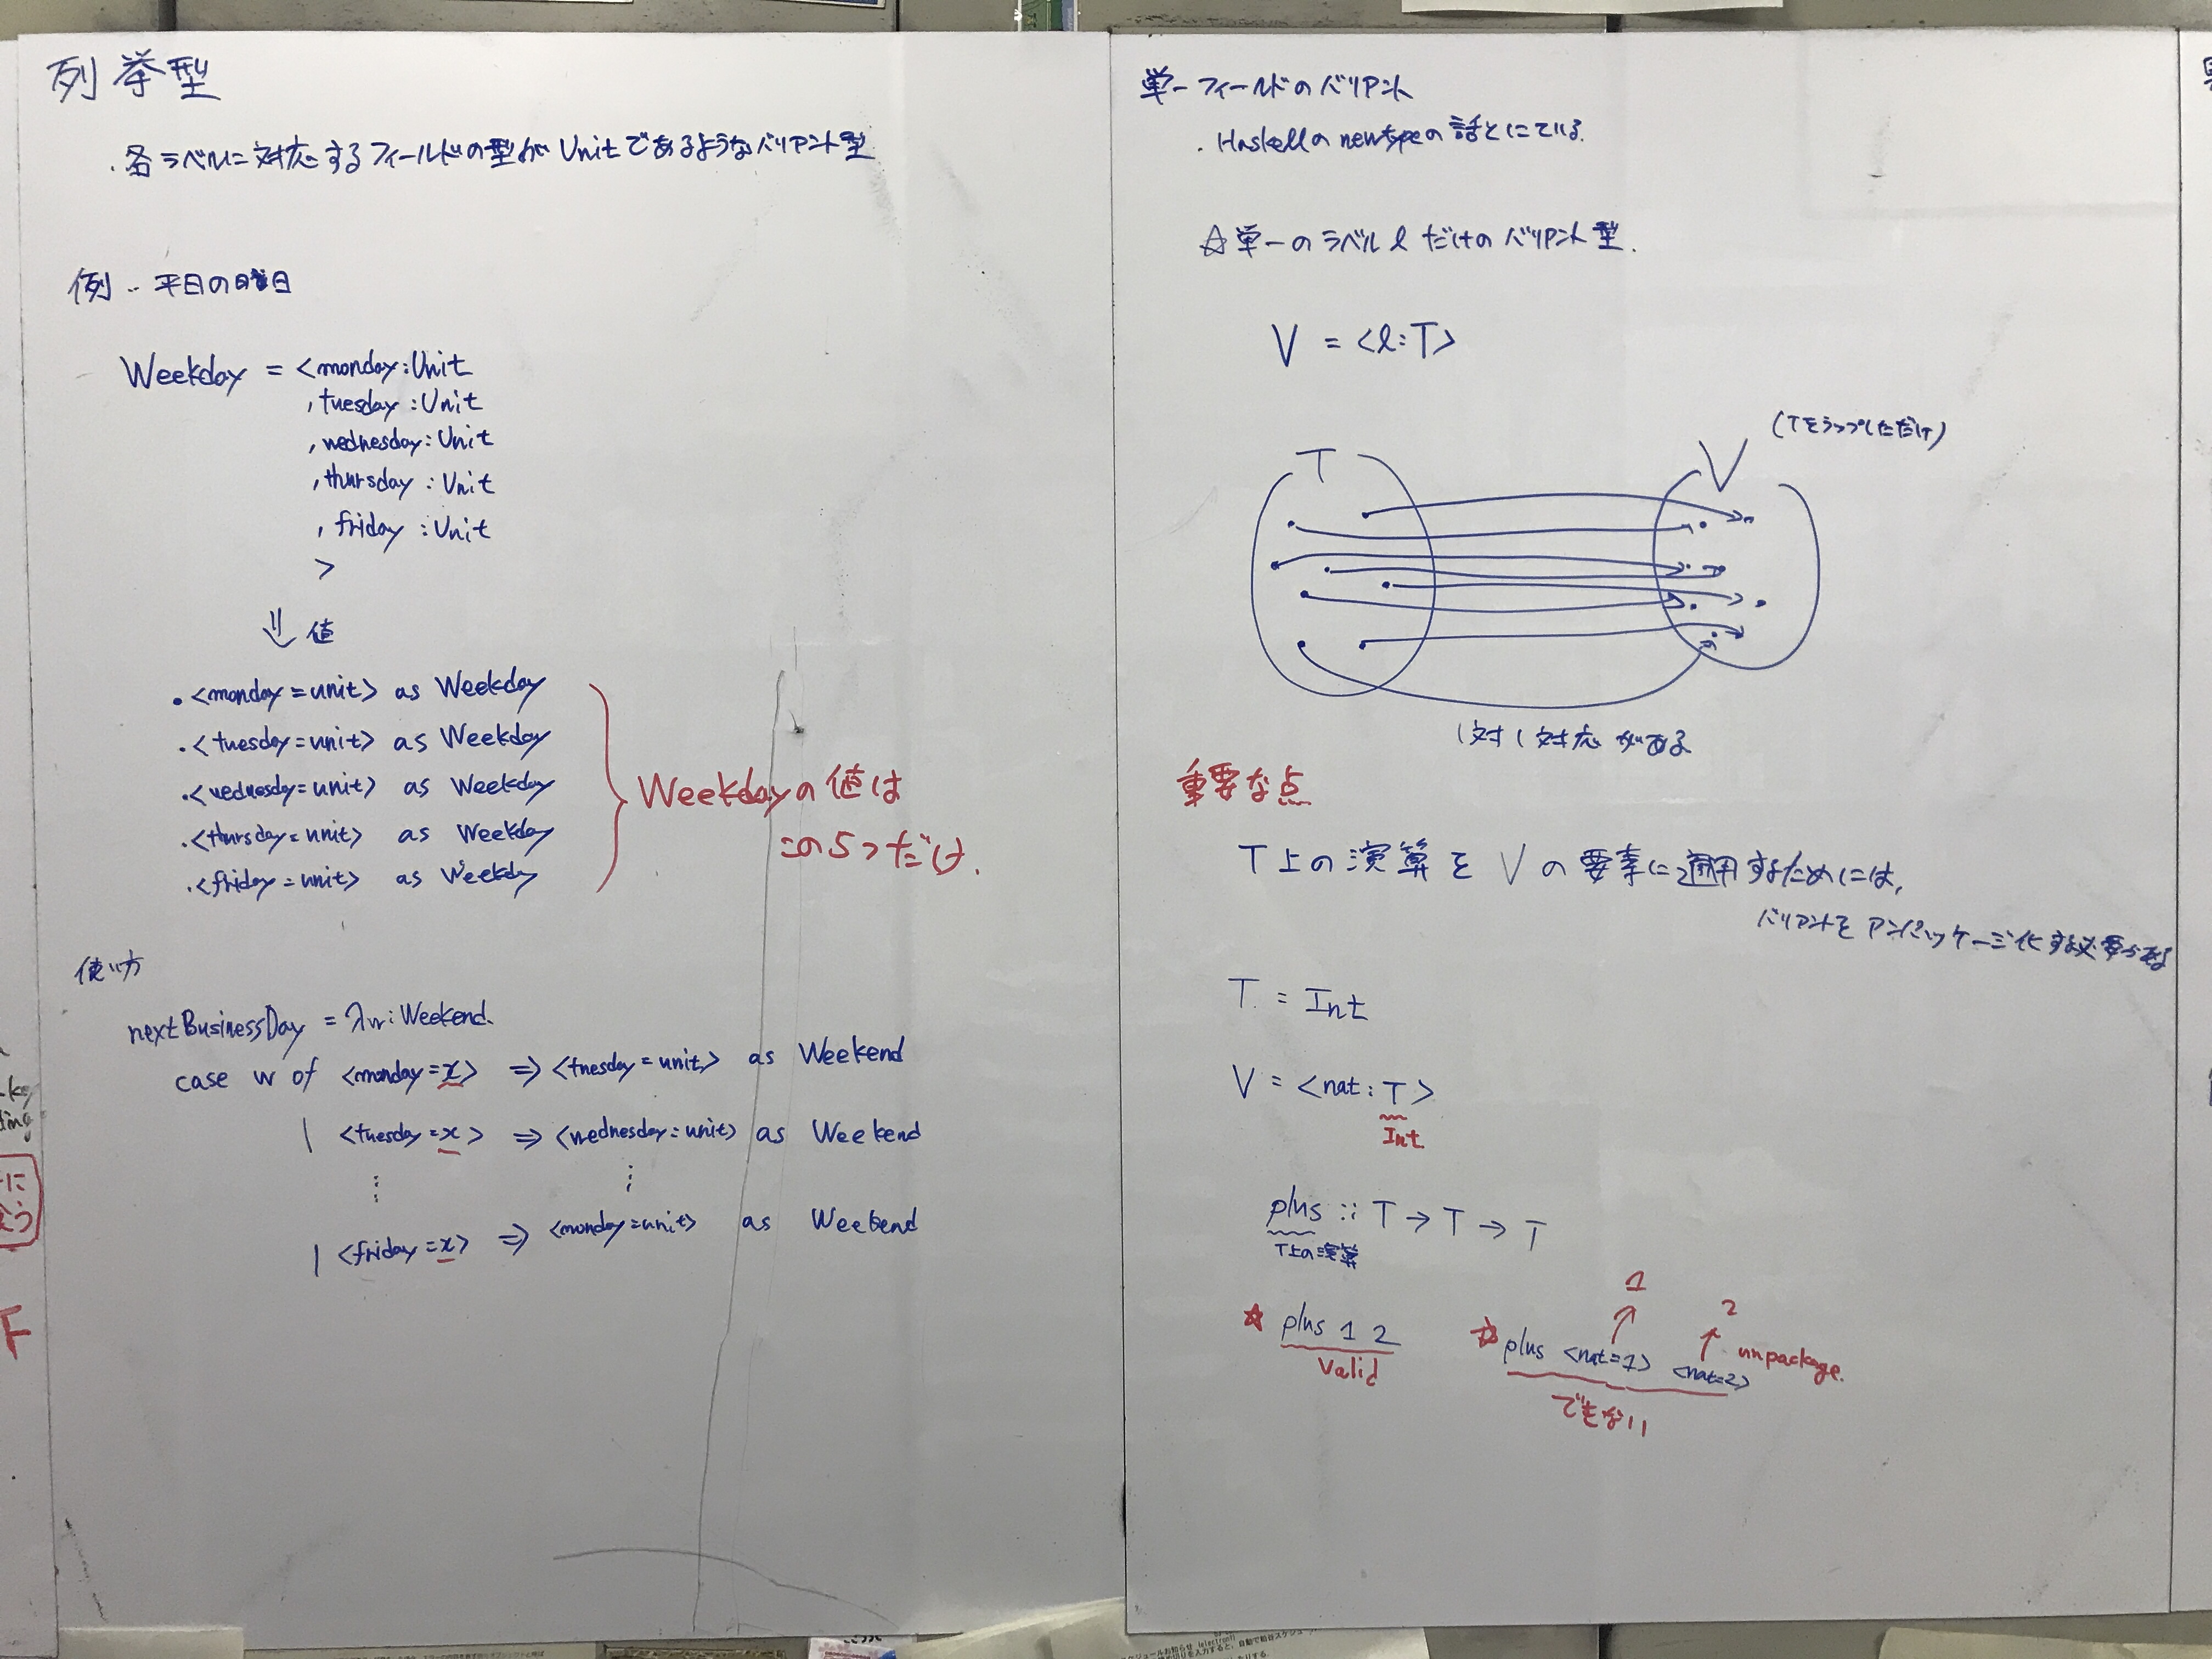 列挙型
・各ラベルに対応するフィールドの型がUnitであるようなバリアント型
例‥平日の曜日
Weekday = <monday:Unit
,tuesday:Unit
,wednesday:Unit
,thursday:Unit
,friday:Unit
>
⇓ 値
・<monday=unit> as Weekday
・<tuesday=unit> as Weekday
・<wednesday=unit> as Weekday
・<thursday=unit> as Weekday
・<friday=unit> as Weekday
Weekdayの値は
この5つだけ.
使い方
nextBusinessDay = λw:Weekend.
case w of <monday=x> ⇒ <tuesday=unit> as Weekend
| <tuesday=x> ⇒ <wednesday=unit> as Weekend
⋮ ⋮
| <friday=x> ⇒ <monday=unit> as Weekend
単一フィールドのバリアント
・Haskellのnewtypeの話とにている.
☆単一のラベルlだけのバリアント型.
V = <l:T>
(Tをラップしただけ)
T V
1対1対応がある
重要な点
T上の演算をVの要素に適用するためには,
バリアントをアンパッケージ化する必要がある
T = Int
V = <nat:T>
Int
plus :: T → T → T
T上の演算
1
2
☆ plus 1 2 ☆ plus <nat=1> <nat=2> unpackage.
Valid
できない
に
F